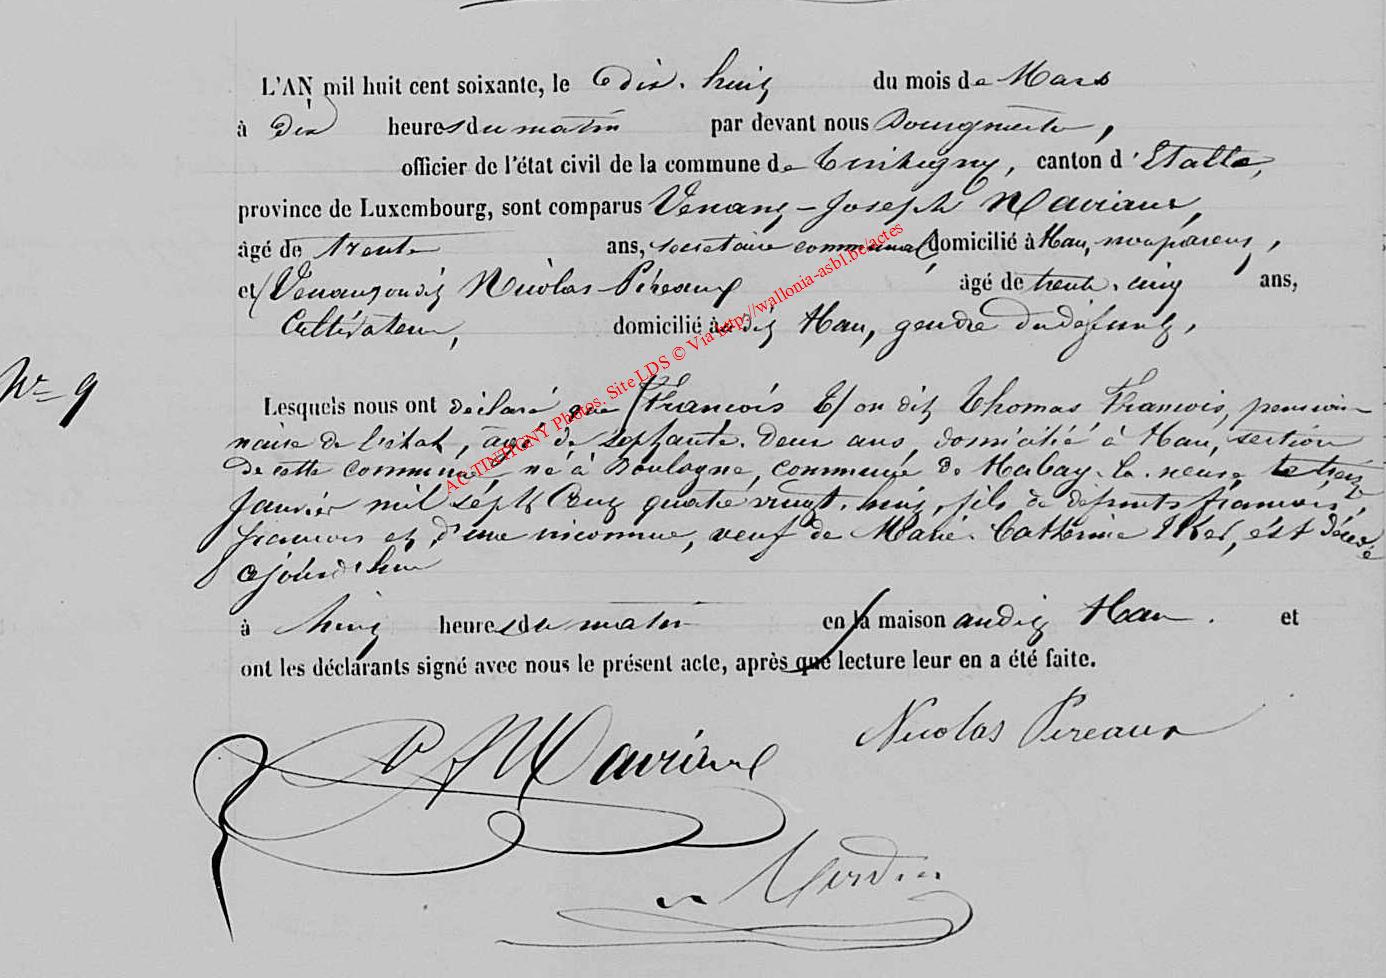 L'AN mil huit cent soixante, le dix-huit du mois de Mars
à Dix heures du matin par devant nous Bourgmestre,
officier de l'état civil de la commune de Tintigny, canton d'Etalle,
province de Luxembourg, sont comparus Venant-Joseph Mariaux,
âgé de trente ans, secrétaire communal, domicilié à Han, non parent,
et Nicolas Pireaux âgé de trente-cinq ans,
Cultivateur, domicilié au dit Han, gendre du défunt,
Nº 9
Lesquels nous ont déclaré que François ou dit Thomas François, pension-
naire de l'état, âgé de septante-deux ans, domicilié à Han, section
de cette commune, né à Boulogne, commune de Habay-la-neuve le treize
Janvier mil sept Cent quatre vingt-huit, fils de défunts françois,
françois et d'une inconnue, veuf de Marie-Catherine est décédé
cejourd'hui
à huit heures du matin en la maison audit Han. et
ont les déclarants signé avec nous le présent acte, après que lecture leur en a été faite.
Mariaux
Nicolas Pireaux
AC TINTIGNY Photos. Site LDS © Via http://wallonia-asbl.be/actes